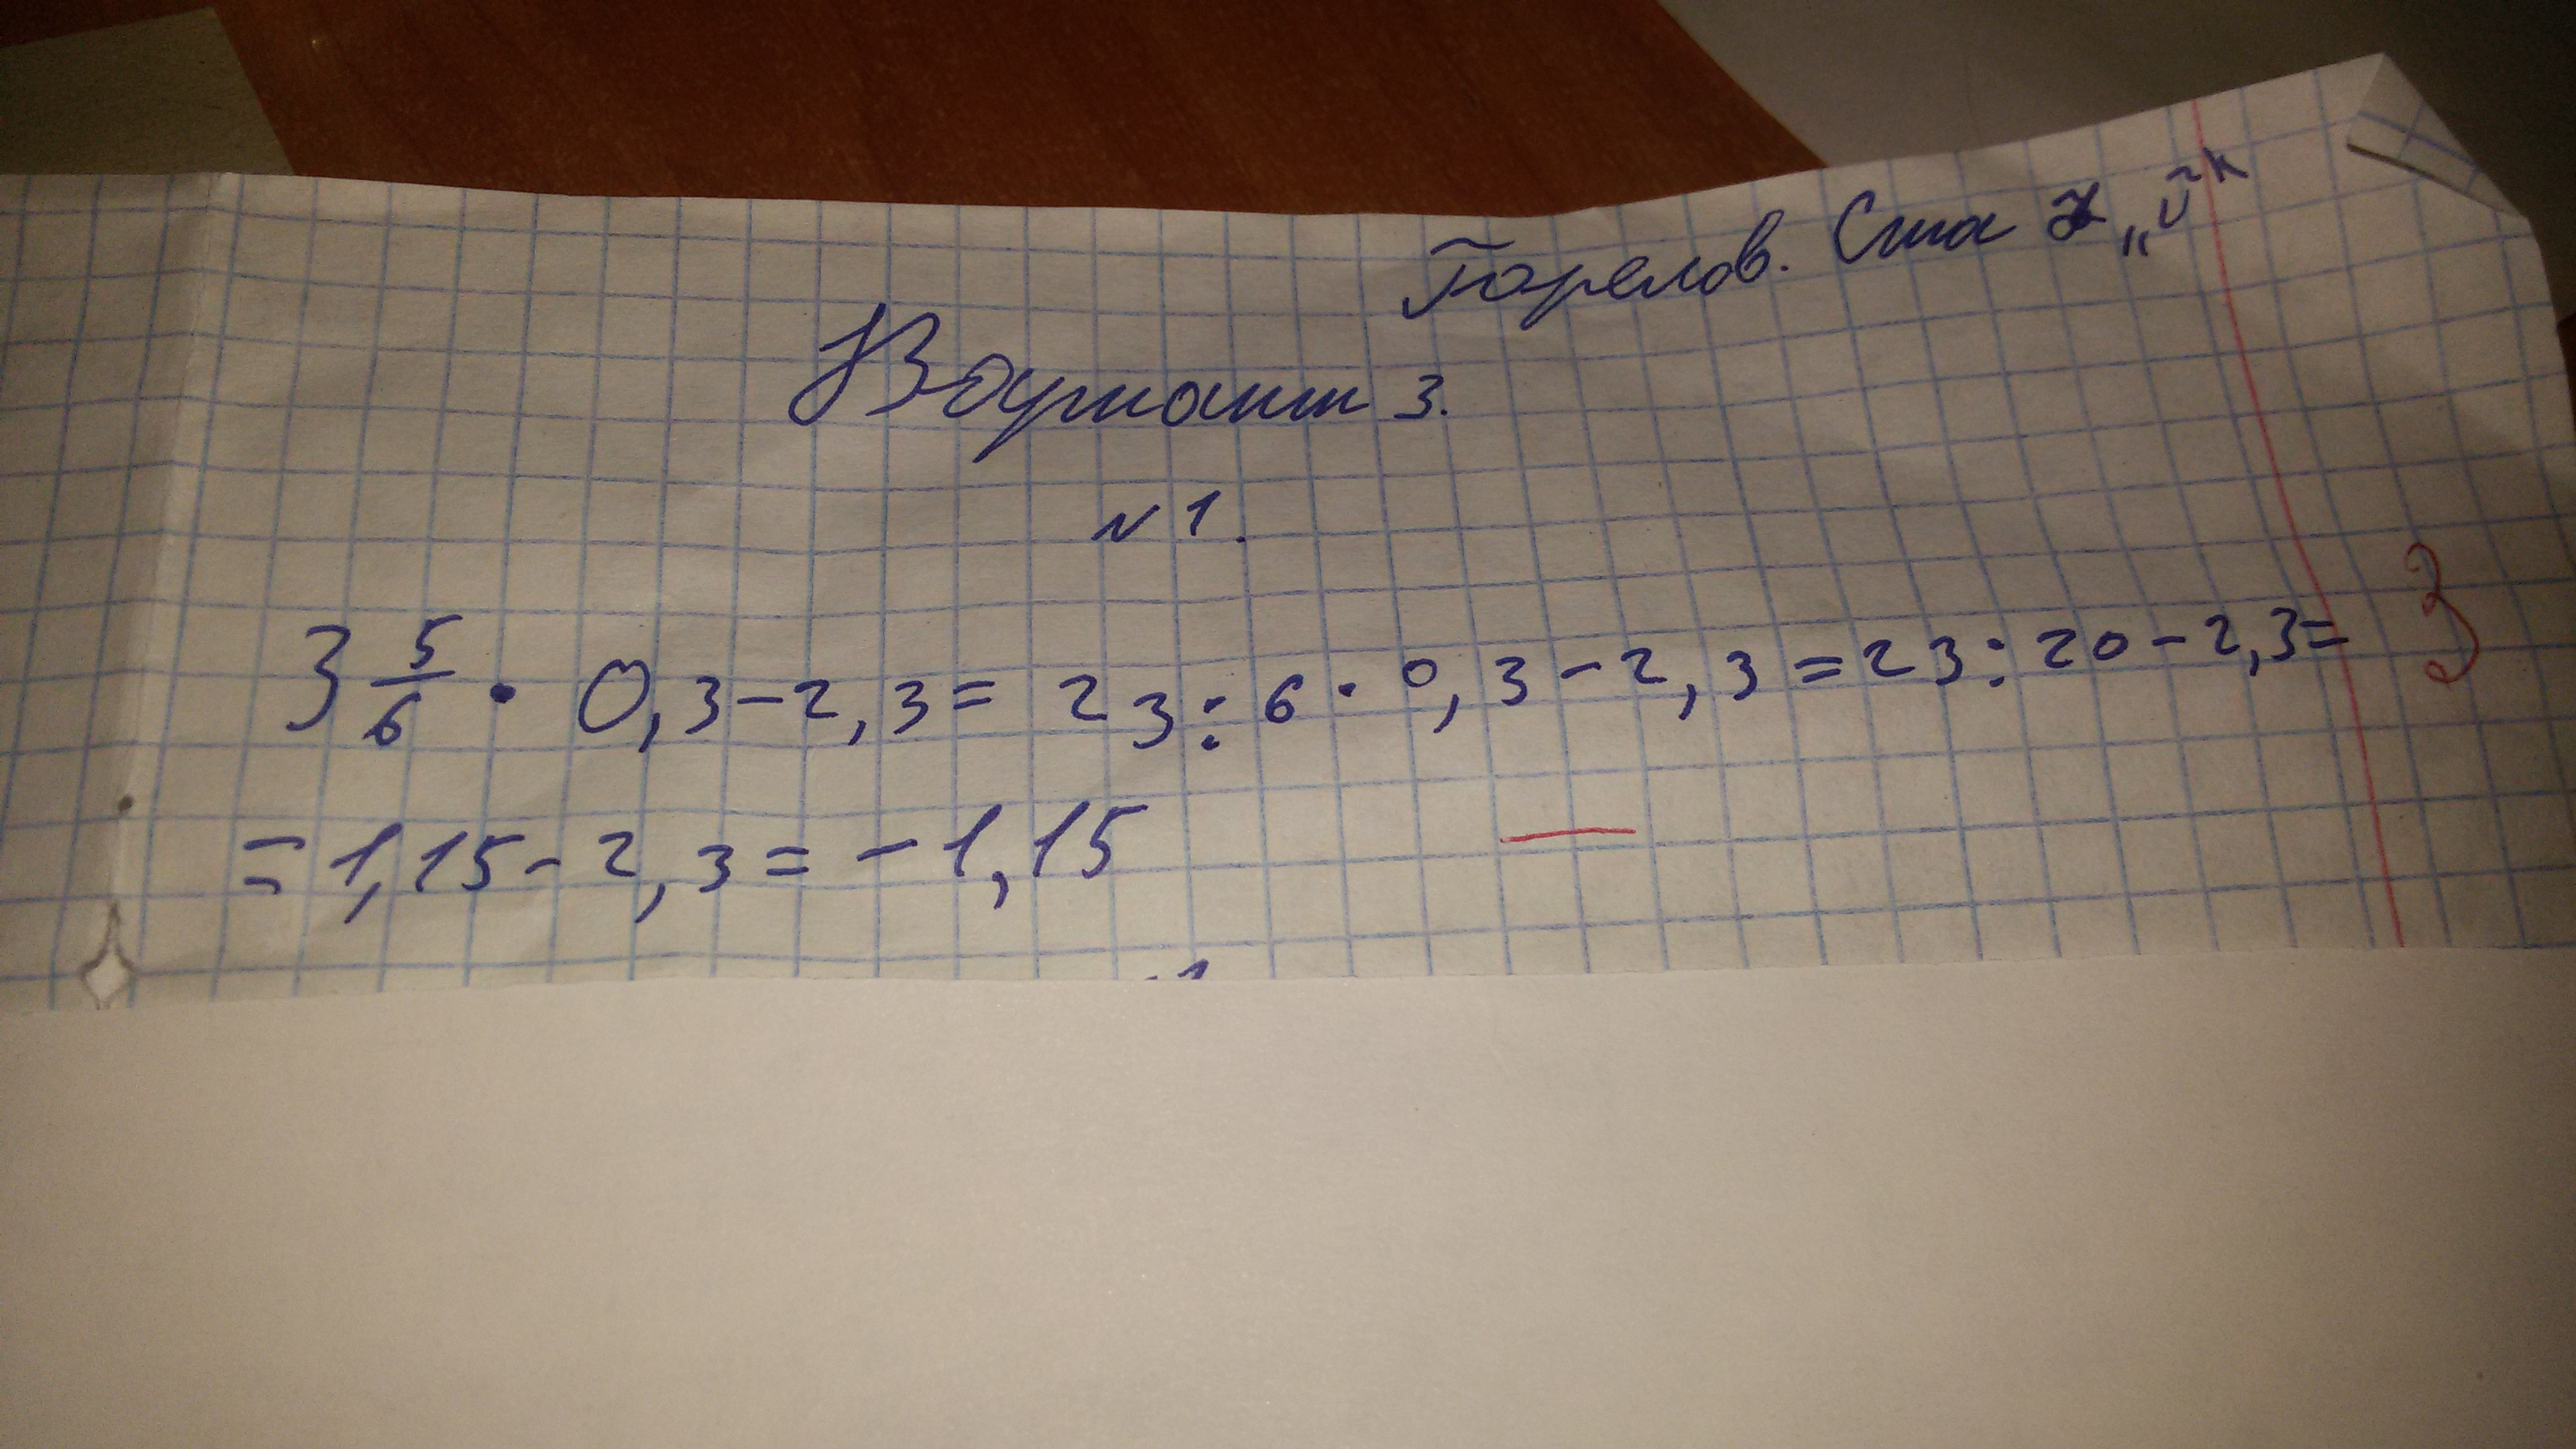 Горелов. Сша 7 „И"
Вариант 3.
N 1.
3 5/6 · 0,3-2,3= 23:6·0,3-2,3=23:20-2,3=
3
=1,15-2,3=-1,15